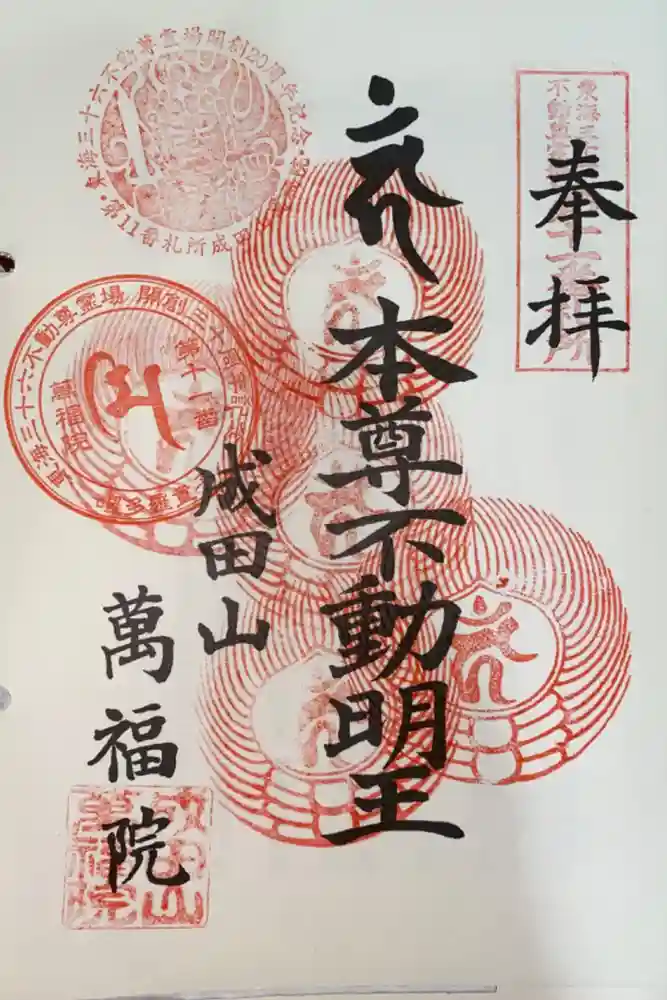 奉拝
本尊不動明王
成田山
萬福院
東海三十六不動尊霊場開創20周年記念
第11番札所成田山
東海三十六不動尊霊場 開創三十周年記
第十一番
萬福院